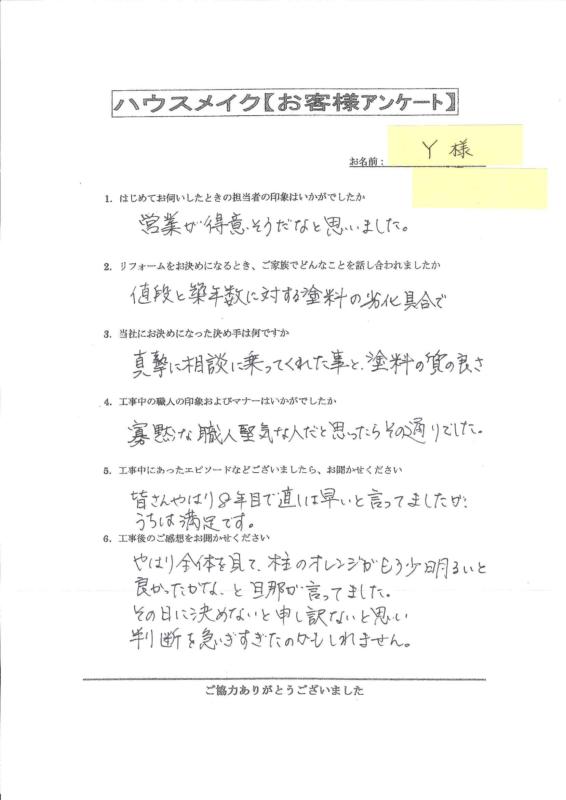 ハウスメイク【お客様アンケート】
お名前： Y 様
1. はじめてお伺いしたときの担当者の印象はいかがでしたか
営業が得意そうだなと思いました。
2. リフォームをお決めになるとき、ご家族でどんなことを話し合われましたか
値段と築年数に対する塗料の劣化具合で
3. 当社にお決めになった決め手は何ですか
真摯に相談に乗ってくれた事と、塗料の質の良さ
4. 工事中の職人の印象およびマナーはいかがでしたか
寡黙な職人堅気な人だと思ったらその通りでした。
5. 工事中にあったエピソードなどございましたら、お聞かせください
皆さんやはり8年目で直しは早いと言ってましたが、
うちは満足です。
6. 工事後のご感想をお聞かせください
やはり全体を見て、柱のオレンジがもう少し明るいと
良かったかな、と旦那が言ってました。
その日に決めないと申し訳ないと思い
判断を急いぎすぎたのかもしれません。
ご協力ありがとうございました